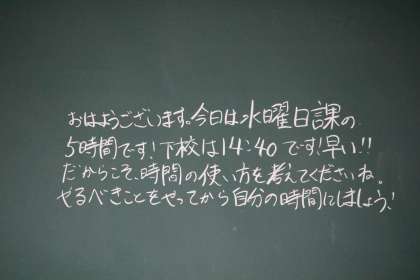 おはようございます。今日は水曜日課の
5時間です!下校は14:40です!早い!!
だからこそ、時間の使い方を考えてくださいね。
やるべきことをやってから自分の時間にしましょう!